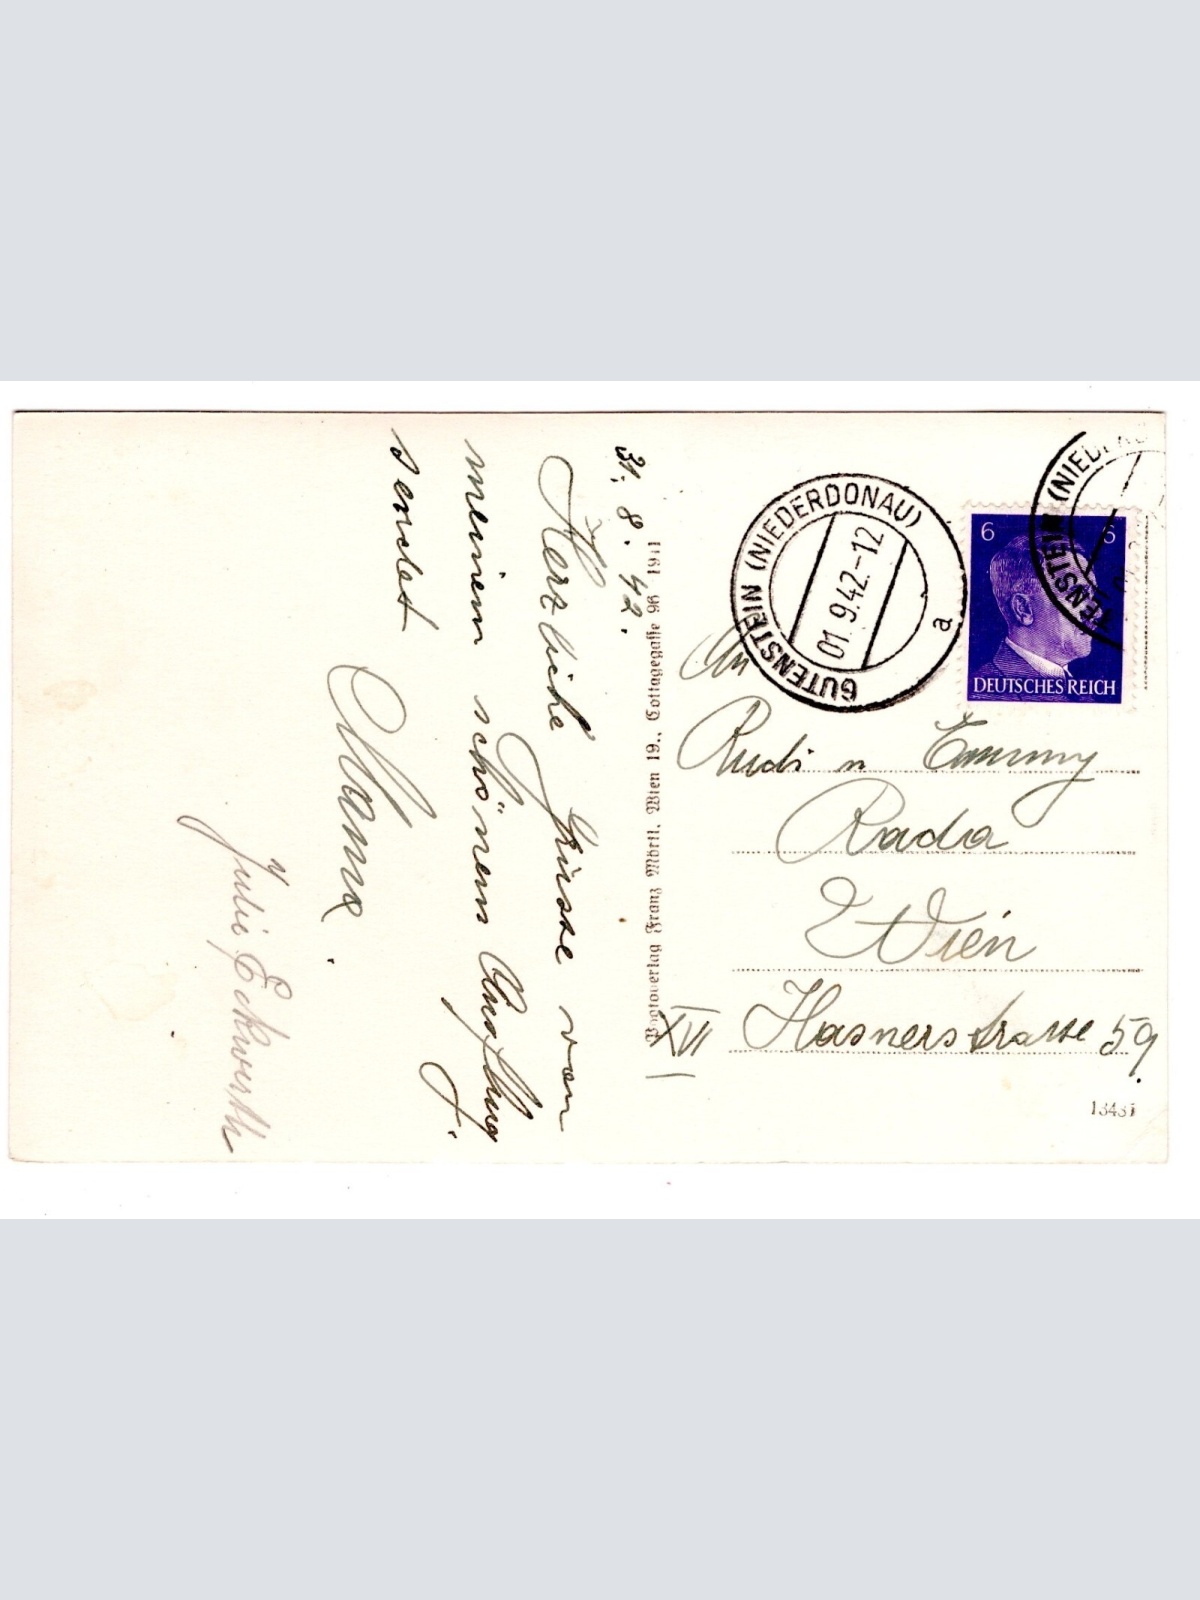 31.8.42.
Herzliche Grüsse von
meinem schönem Ausflug
sendet
Mama.
Julie Eckwerth
Fotoverlag Franz Mörtl, Wien 19., Cottagegasse 96 1941
GUTENSTEIN (NIEDERDONAU)
01.9.42.-12
a
6 6
DEUTSCHES REICH
TENSTEIN (NIED
An
Rudi u Emmy
Rada
Wien
XVI Hasnerstrasse 59.